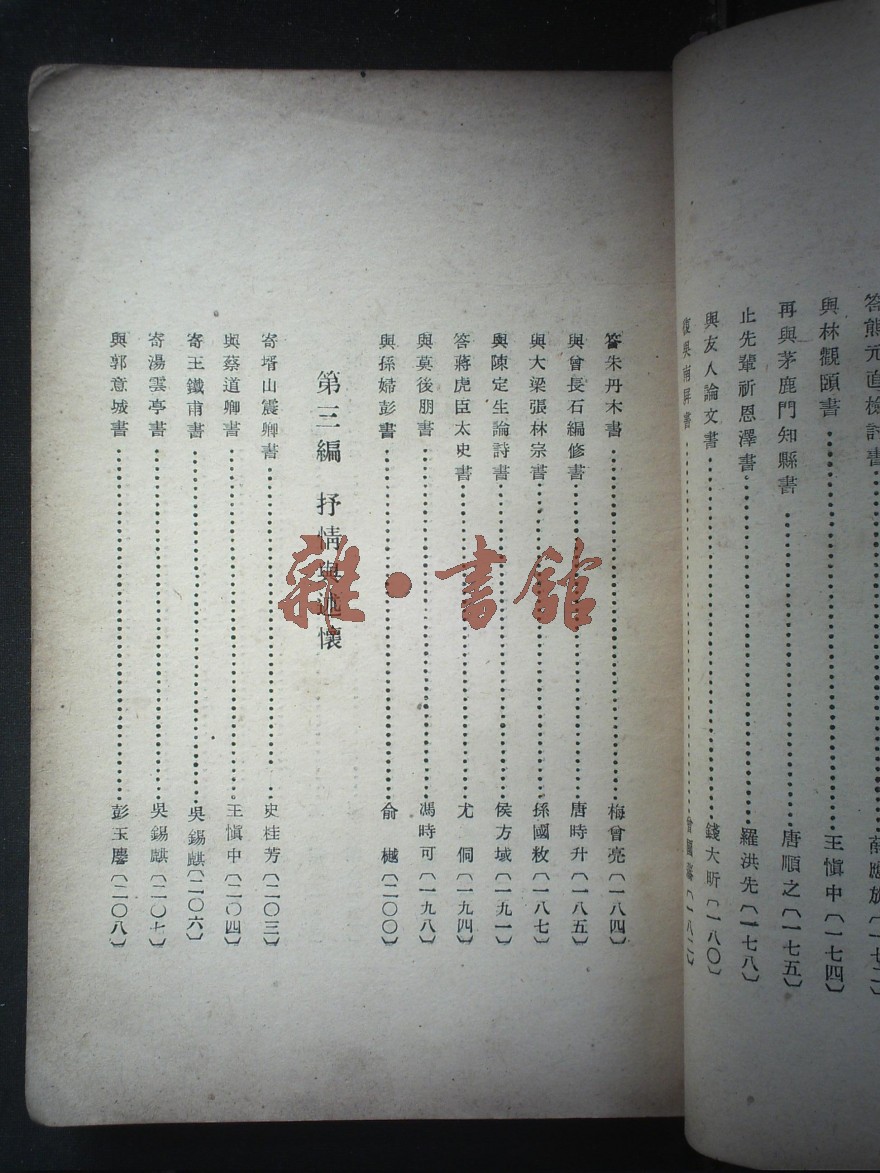 答熊元直檢討書……薛應旂〔一七二〕
與林觀頤書……王愼中〔一七四〕
再與茅鹿門知縣書……唐順之〔一七五〕
止先輩祈恩澤書……羅洪先〔一七八〕
與友人論文書……錢大昕〔一八〇〕
復吳南屏書……曾國藩〔一八二〕
答朱丹木書……梅曾亮〔一八四〕
與曾長石編修書……唐時升〔一八五〕
與大梁張林宗書……孫國敉〔一八七〕
與陳定生論詩書……侯方域〔一九一〕
答蔣虎臣太史書……尤侗〔一九四〕
與莫後朋書……馮時可〔一九八〕
與孫婦彭書……俞樾〔二〇〇〕
第三編 抒情與述懷
寄壻山震卿書……史桂芳〔二〇三〕
與蔡道卿書……王愼中〔二〇四〕
寄王鐵甫書……吳錫麒〔二〇六〕
寄湯雲亭書……吳錫麒〔二〇七〕
與郭意城書……彭玉麐〔二〇八〕
雜·書館